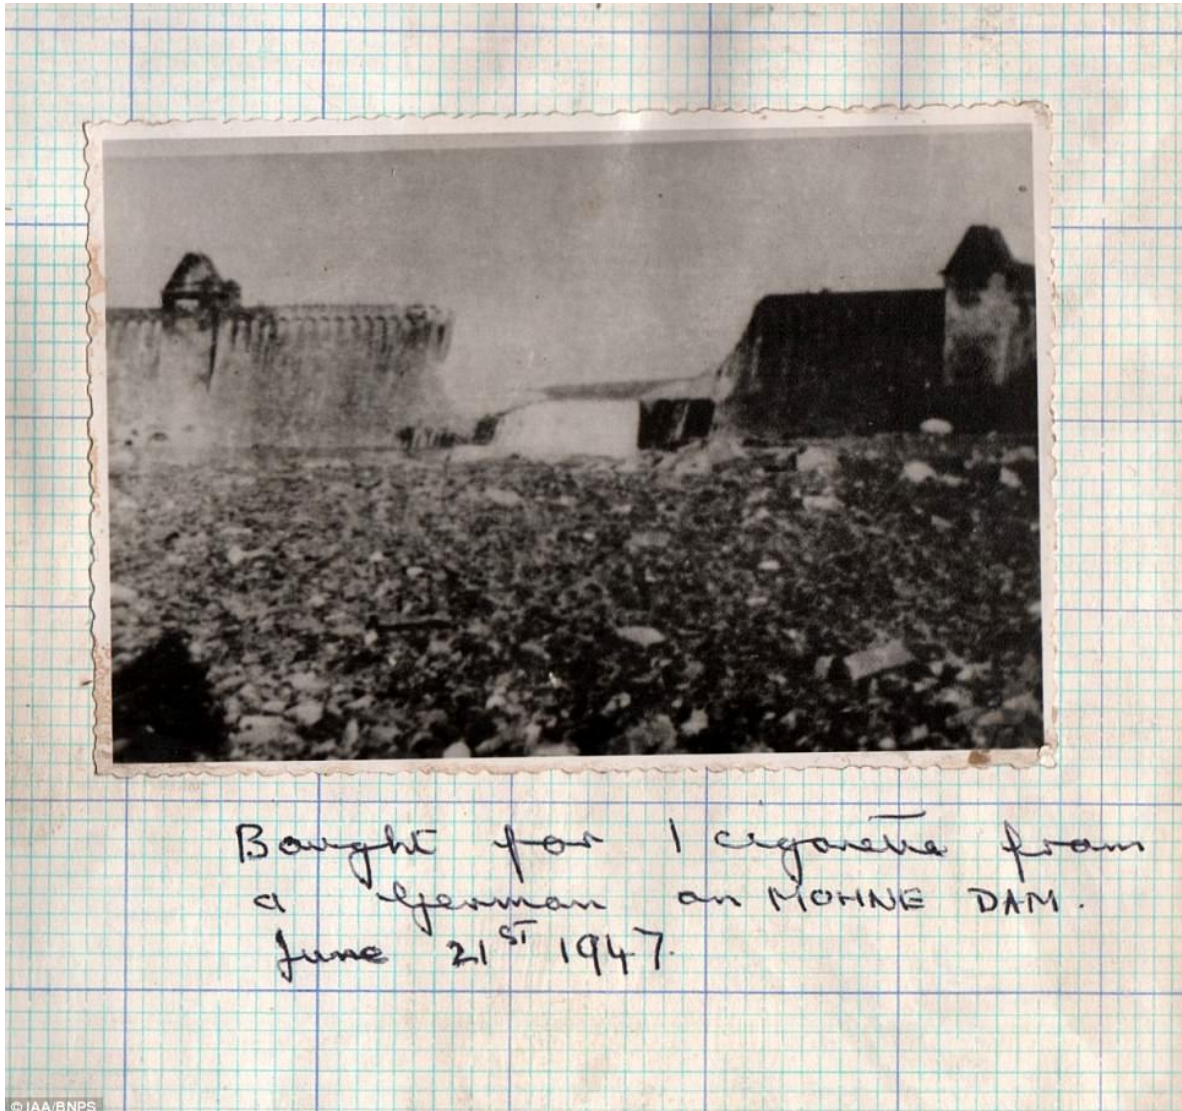 Bought for 1 cigarette from
a German on MOHNE DAM.
June 21ST 1947.
© IAA/BNPS